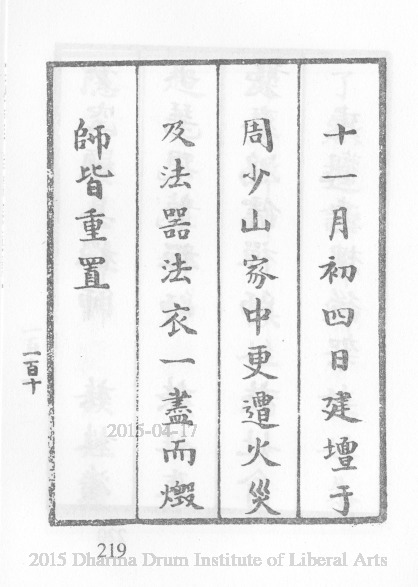 十一月初四日建壇于
周少山家中更遭火災
及法器法衣一盡而燬
師皆重置
一百十
2015-04-17
219
2015 Dharma Drum Institute of Liberal Arts